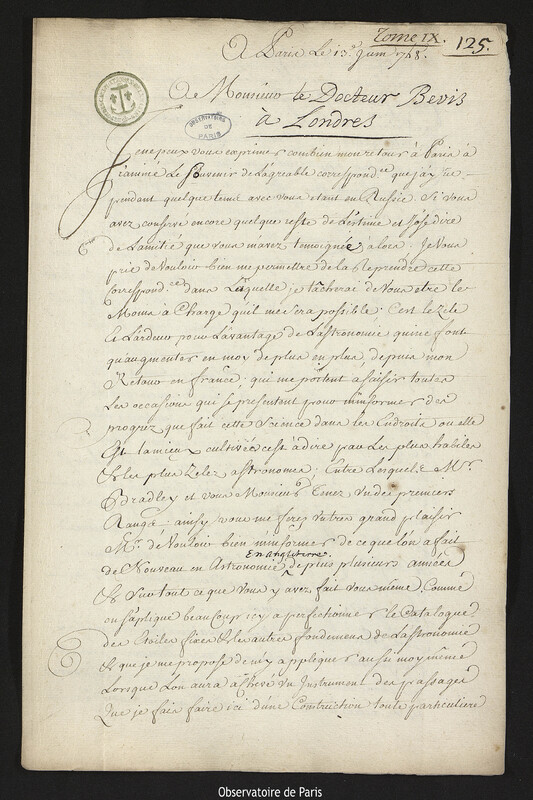 Tome IX.
125.
A Paris Le 13e Juin 1748.
A Monsieur le Docteur Bevis
à Londres
OBSERVATOIRE
DE
PARIS
Je ne peux vous exprimer combien mon retour à Paris à
ranimé Le Souvenir de L'agreable correspondce que j'ay eüe
pendant quelque tems avec vous etant en Russie. Si vous
avez conservé encore quelque reste de L'estime et j'ose dire
de L'amitié que vous m'avez temoignée alors. Je Vous
prie de Vouloir bien me permettre de la Reprendre cette
correspondce dans Laquelle je tâcherai de Vous etre le
Moins à Charge qu'il me sera possible. C'est le Zele
et L'ardeur pour L'avantage de L'astronomie qui ne font
qu'augmenter en moy de plus en plus, depuis mon
Retour en france, qui me portent a saisir toutes
Les occasions qui se presentent pour m'informer des
progrez que fait cette Science dans les Endroits ou elle
Est La mieux cultivée c'est a dire par Les plus habiles
& les plus Zelez astronomes; Entre Lesquels Mr.
Bradley et vous Monsieur Tenez un des premiers
Rangs: ainsy vous me ferez un tres grand plaisir
Mr. de Vouloir bien m'informer de ce que l'on a fait
En angleterre.
de Nouveau en Astronomie depuis plusieurs années
& Sur tout ce que Vous y avez fait Vous même. Comme
on s'aplique beaucoup icy a perfectionner le Catalogue
des Etoiles fixes & les autres fondemens de L'astronomie
& que je me propose de m'y appliquer aussi moy même
Lorsque L'on aura achevé un Instrument des passages
Que je fais faire ici d'une Construction toute particuliere
Observatoire de Paris